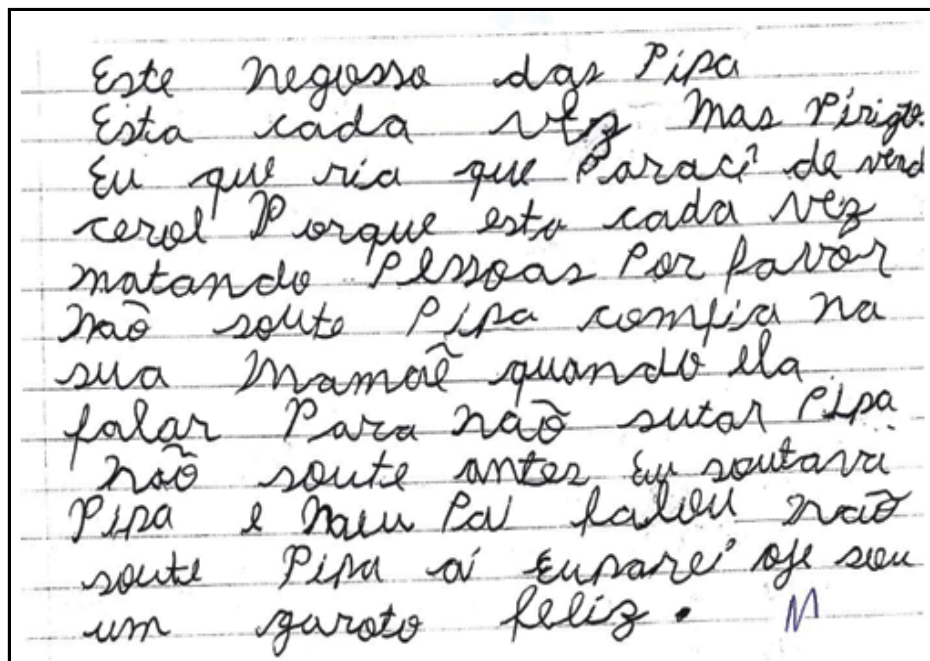 Este negosso das Pipa
Esta cada vez mas Pirigto.
Eu que ria que Paraci de vend
cerol Porque esta cada vez
matando Pessoas Por favor
não soute Pipa comfia na
sua Mamãe quando ela
falar Para não sutar Pipa
não soute antes Eu soutava
Pipa e Meu Pai falou não
soute Pipa aí Euparei oje sou
um garoto feliz.